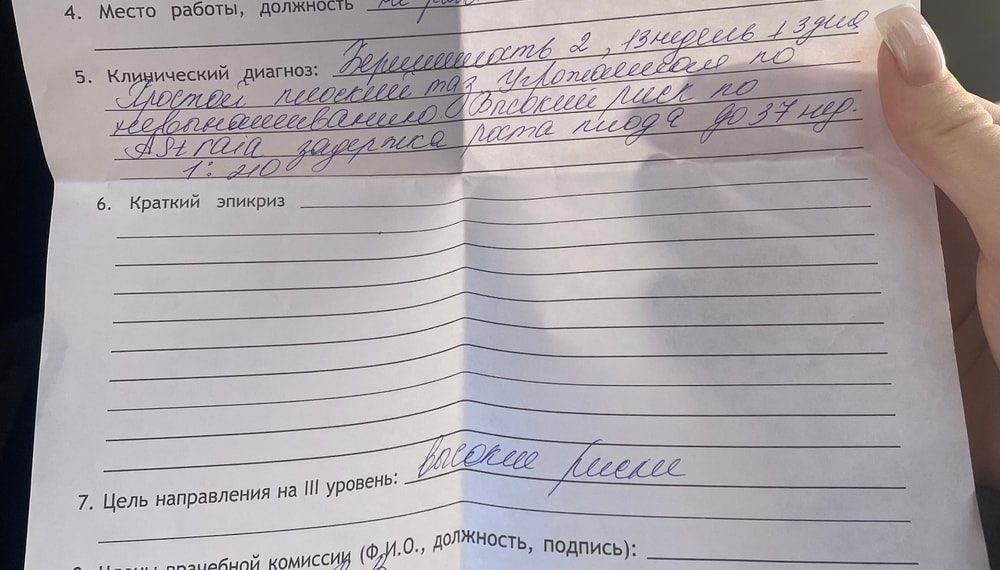 4. Место работы, должность не раб
5. Клинический диагноз: Беременность 2, 13 недель + 3 дня
Простой плоский таз. Угрожаемая по
невынашиванию. Высокий риск по
Astraia задержка роста плода до 37 нед.
1:210
6. Краткий эпикриз
7. Цель направления на III уровень: высокие риски
врачебной комиссии (Ф.И.О., должность, подпись):